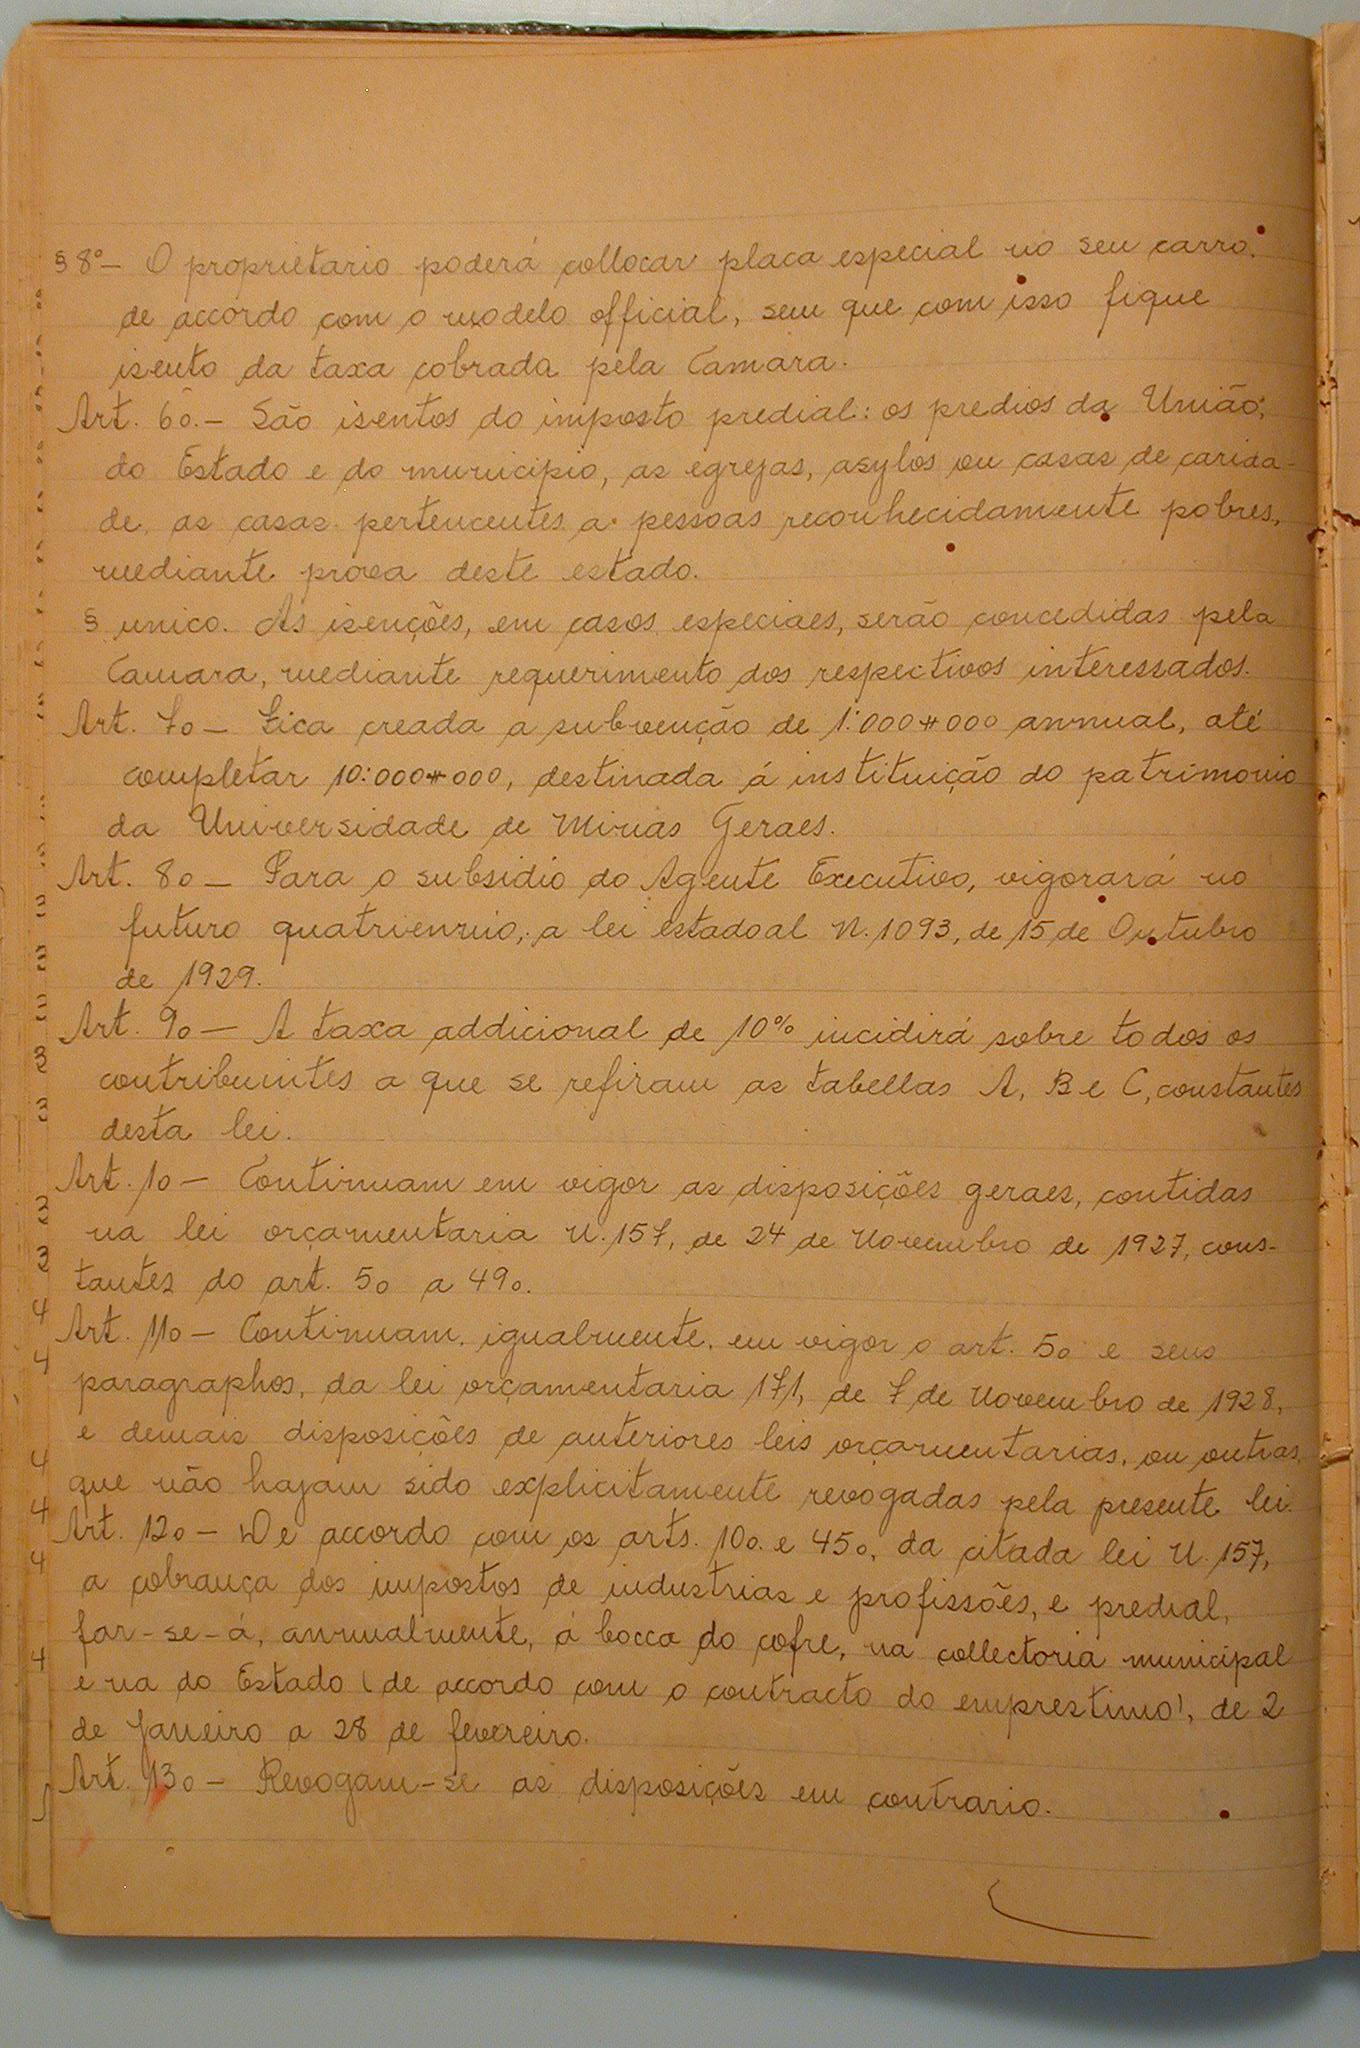 § 8º — O proprietario poderá collocar placa especial no seu carro,
de accordo com o modelo official, sem que com isso fique
isento da taxa cobrada pela Camara.
Art. 6o. — São isentos do imposto predial: os predios da União,
do Estado e do municipio, as egrejas, asylos ou casas de carida-
de, as casas pertencentes a pessoas reconhecidamente pobres,
mediante prova deste estado.
§ unico. As isenções, em casos especiaes, serão concedidas pela
Camara, mediante requerimento dos respectivos interessados.
Art. 7o — Fica creada a subvenção de 1:000$000 annual, até
completar 10:000$000, destinada á instituição do patrimonio
da Universidade de Minas Geraes.
Art. 8o — Para o subsidio do Agente Executivo, vigorará no
futuro quatriennio, a lei estadoal N. 1093, de 15 de Outubro
de 1929.
Art. 9o — A taxa addicional de 10% incidirá sobre todos os
contribuintes a que se refiram as tabellas A, B e C, constantes
desta lei.
Art. 10 — Continuam em vigor as disposições geraes, contidas
na lei orçamentaria N. 157, de 24 de Novembro de 1927, cons-
tantes do art. 5o a 49o.
Art. 11o — Continuam, igualmente, em vigor o art. 5o e seus
paragraphos, da lei orçamentaria 171, de 7 de Novembro de 1928,
e demais disposições de anteriores leis orçamentarias, ou outras,
que não hajam sido explicitamente revogadas pela presente lei.
Art. 12o — De accordo com os arts. 10o. e 45o, da citada lei N. 157,
a cobrança dos impostos de industrias e profissões, e predial,
far-se-á, annualmente, á bocca do cofre, na collectoria municipal
e na do Estado (de accordo com o contracto do emprestimo), de 2
de Janeiro a 28 de fevereiro.
Art. 13o — Revogam-se as disposições em contrario.